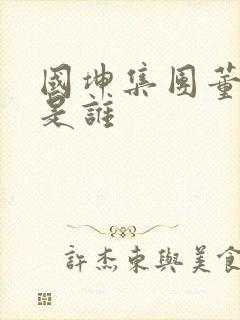 國坤集團董
是誰
許杰東與美食